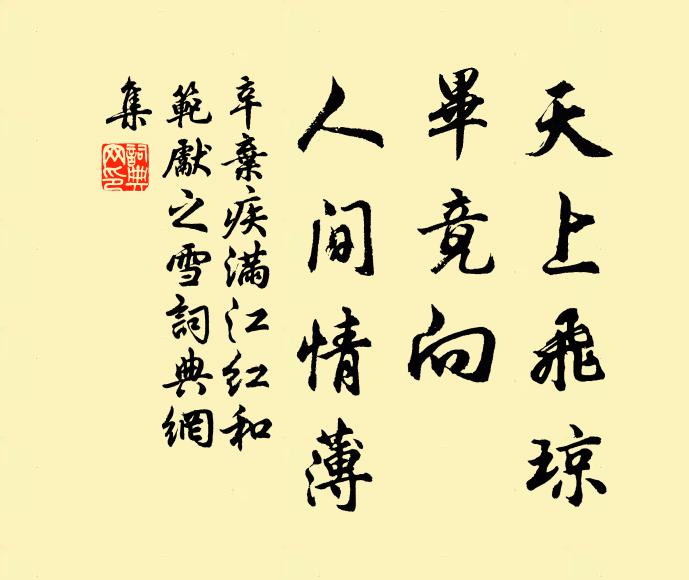 天上飛瓊
畢竟向
人間情薄
辛棄疾滿江紅和
範獻之雪詞典網
集
詞典网印